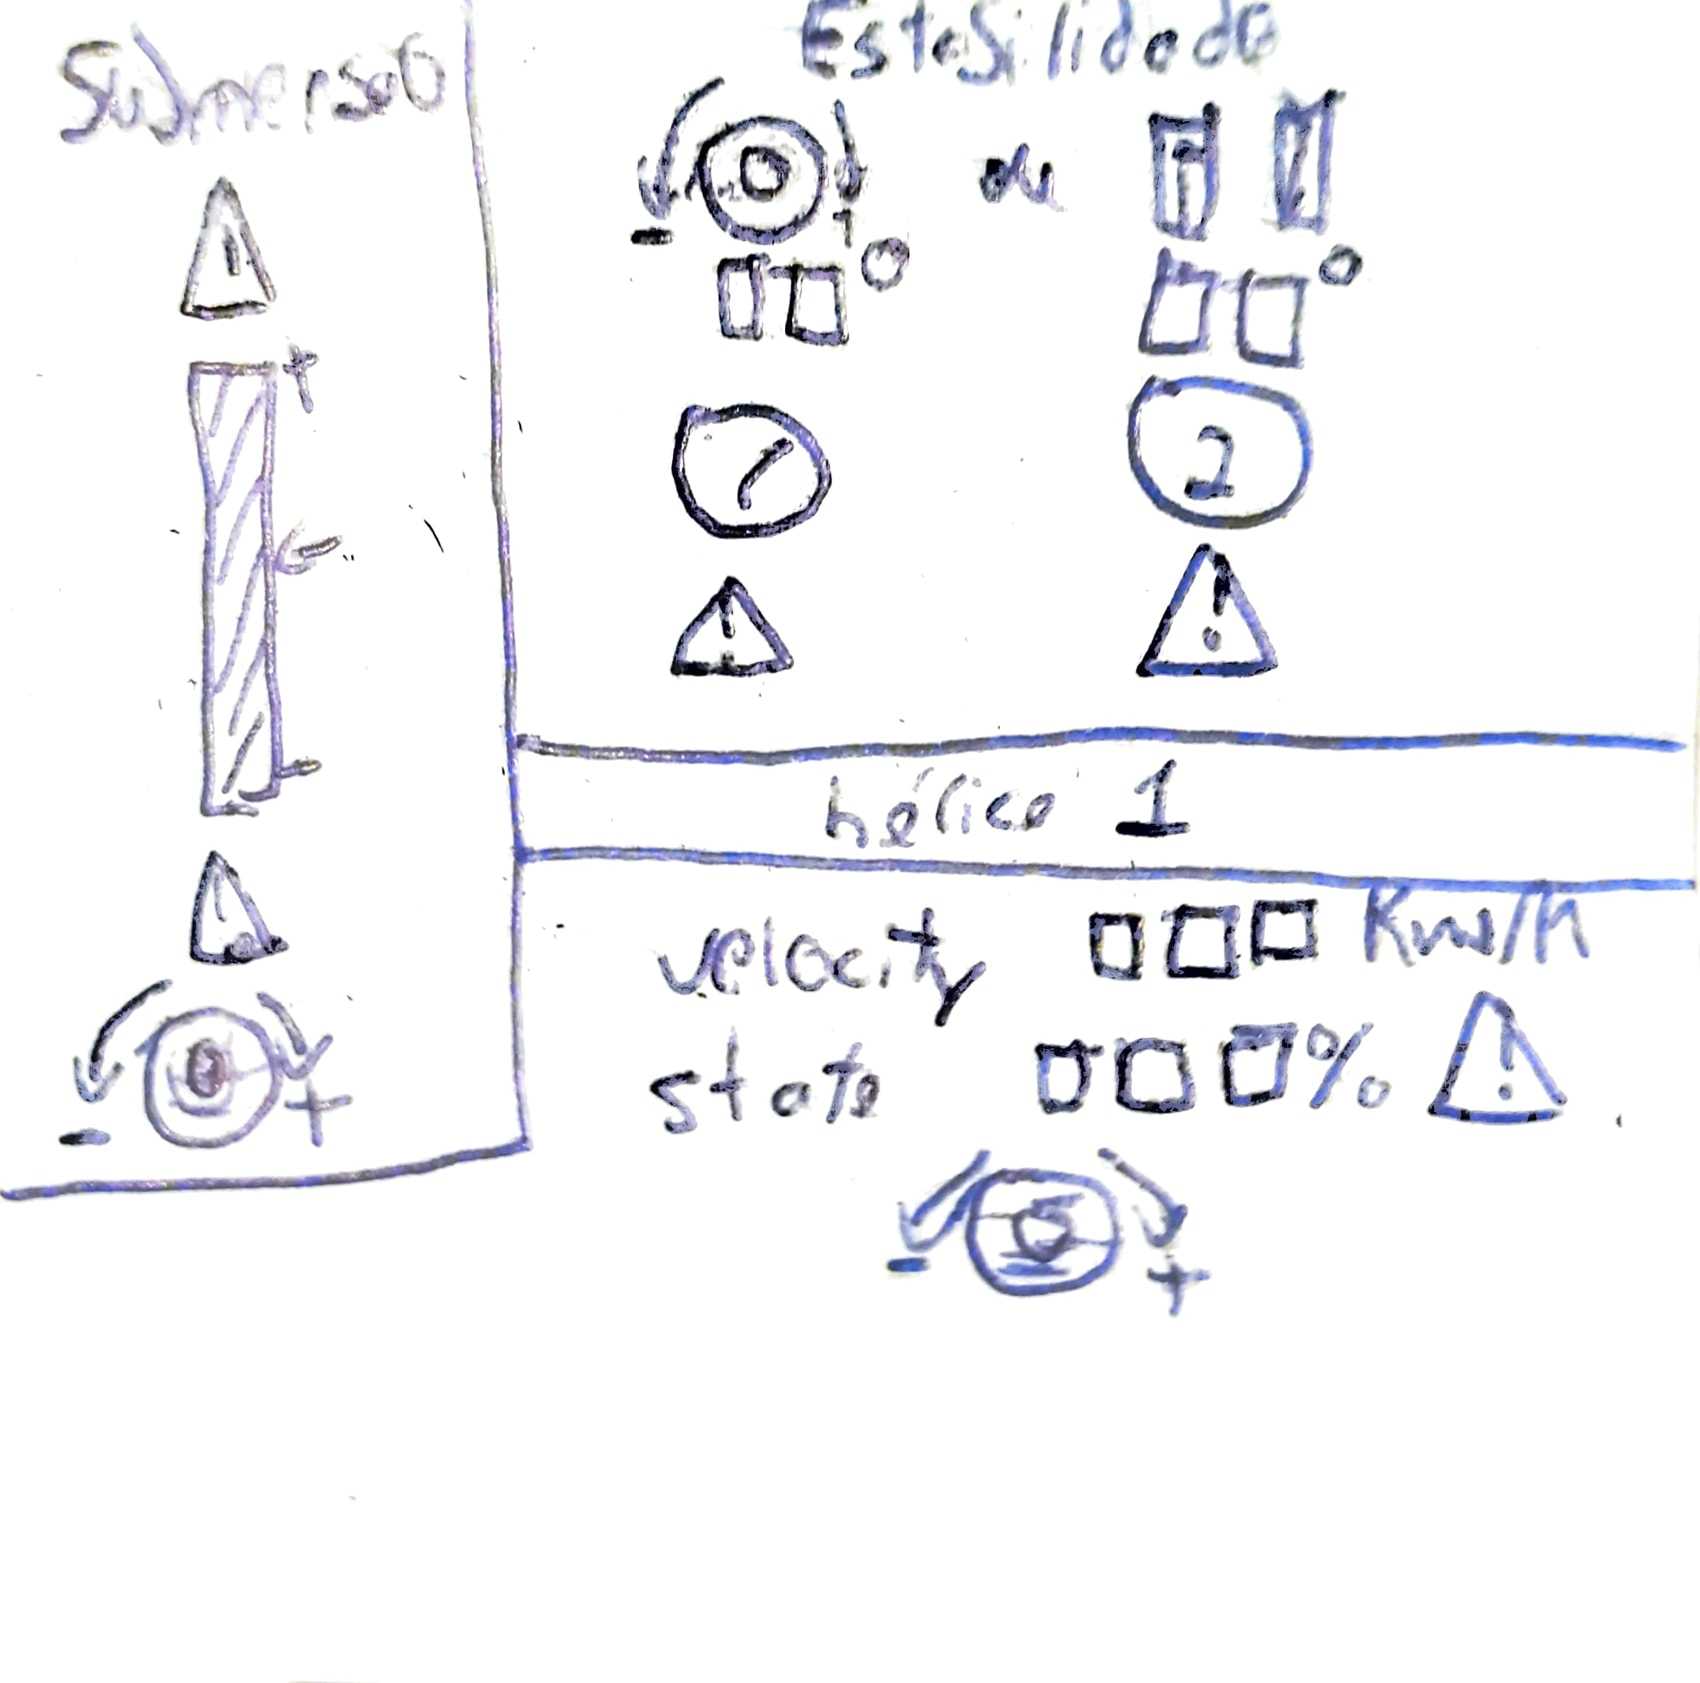 Submersão
+
-
- +
Estabilidade
- +
ou
1
2
hélice 1
velocity Km/h
state %
- +